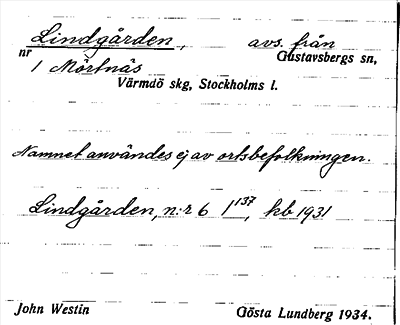 Lindgården, avs. från
nr 1 Mörtnäs Gustavsbergs sn,
Värmdö skg, Stockholms l.
Namnet användes ej av ortsbefolkningen.
Lindgården, n:r 6 1¹³⁷, kb 1931
John Westin Gösta Lundberg 1934.